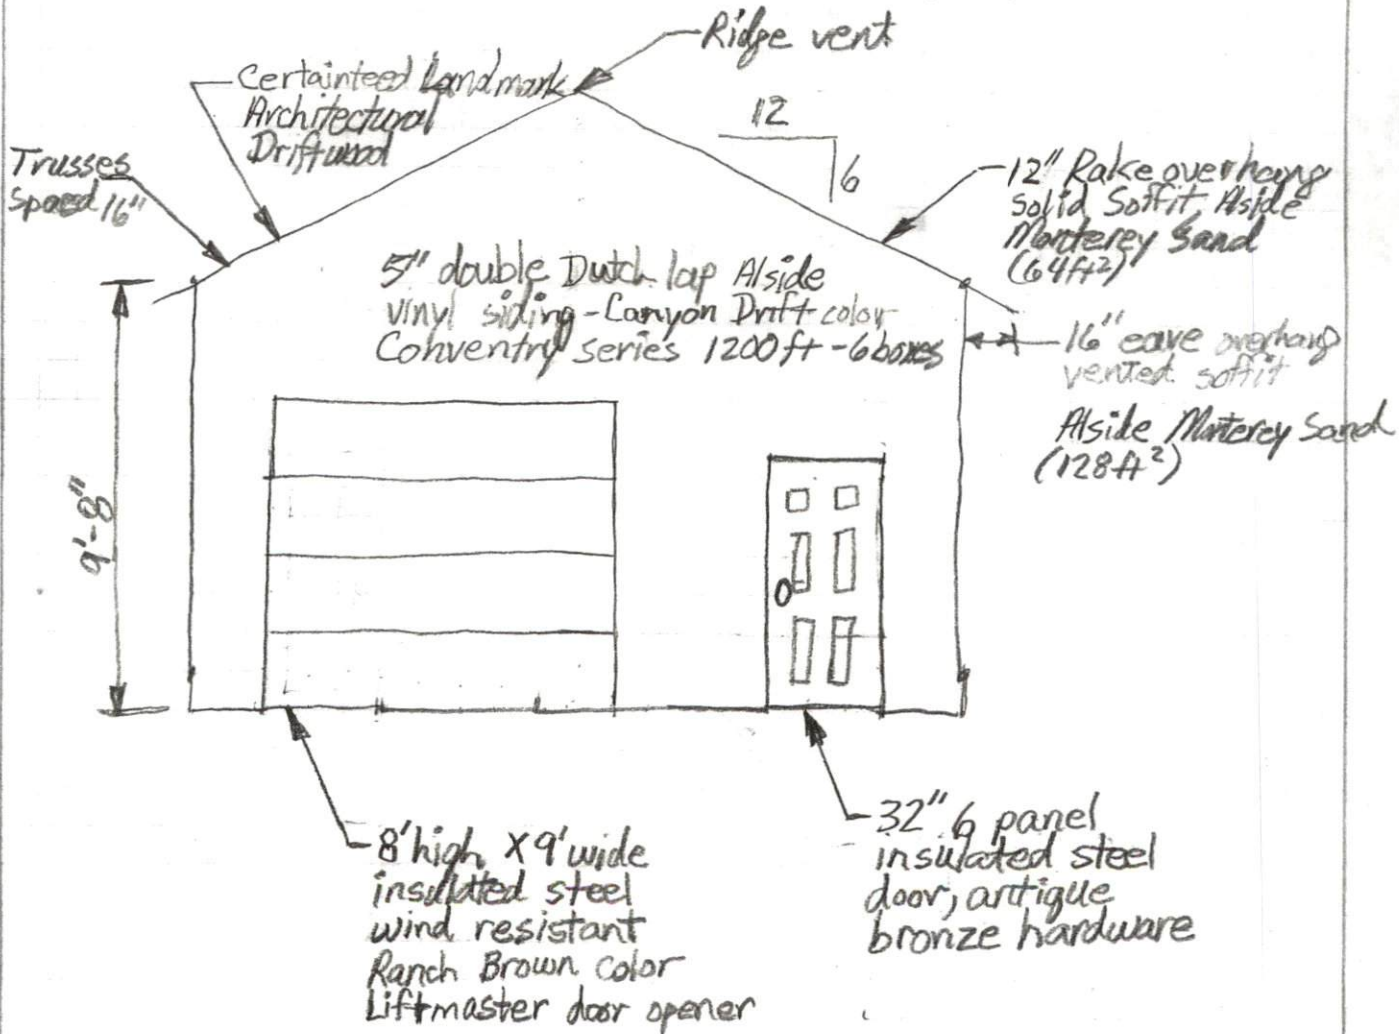 Ridge vent
Certainteed Landmark
Architectural
Driftwood
12
6
Trusses
Spaced 16"
12" Rake overhang
solid Soffit Alside
Monterey Sand
(64ft²)
5" double Dutch lap Alside
vinyl siding - Canyon Drift color
Conventry series 1200 ft - 6 boxes
16" eave overhang
vented soffit
Alside Monterey Sand
(128ft²)
9'-8"
8' high X 9' wide
insulated steel
wind resistant
Ranch Brown color
Liftmaster door opener
32" 6 panel
insulated steel
door, antique
bronze hardware